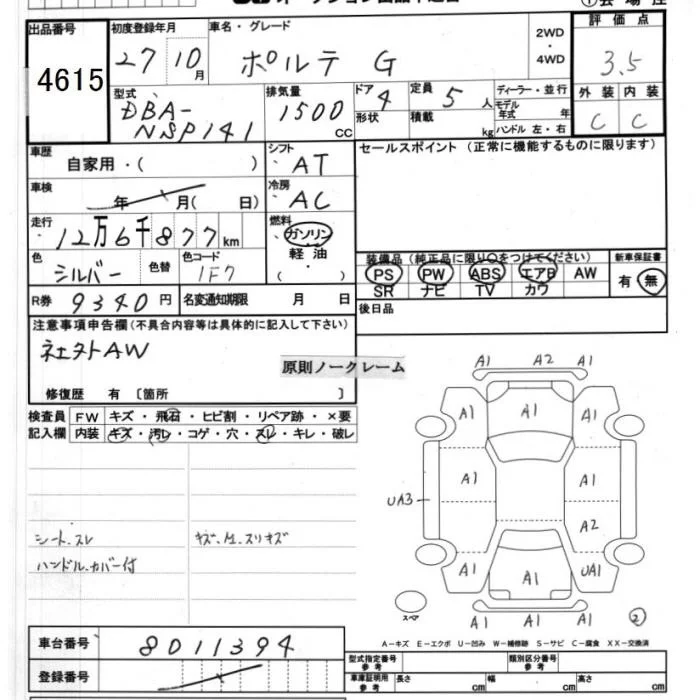 出品番号
4615
初度登録年月
27 10月
車名・グレード
ポルテ G
2WD
・
4WD
評価点
3.5
型式
DBA-
NSP141
排気量
1500
CC
ドア 4
形状
定員 5 人
積載 kg
ディーラー・並行
モデル
年式 年
ハンドル 左・右
外装 内装
C C
車歴
自家用・( )
シフト
AT
セールスポイント (正常に機能するものに限ります)
車検
年 月( 日)
冷房
AC
走行
12万6千877km
燃料
ガソリン
軽油
( ・ )
色
シルバー
色替
色コード
1F7
装備品(純正品に限り○をつけてください)
PS PW ABS エアB AW
SR ナビ TV カワ
新車保証書
有・無
R券 9340円
名変通知期限 月 日
後日品
注意事項申告欄(不具合内容等は具体的に記入して下さい)
原則ノークレーム
修復歴 有〔箇所 〕
検査員
記入欄
FW キズ・飛石・ヒビ割・リペア跡・×要
内装 キズ・汚レ・コゲ・穴・スレ・キレ・破レ
シート、スレ
ハンドルカバー付
A1 A2 A1
A1 A1 A1
A1 A1
UA3
A2
A1 A1 UA1
A1 A1 A1
スペア
2
A-キズ E-エクボ U-凹み W-補修跡 S-サビ C-腐食 XX-交換済
車台番号
8011394
登録番号
型式指定番号
参考
類別区分番号
参考
車庫証明用
参考
長さ cm
幅 cm
高さ cm